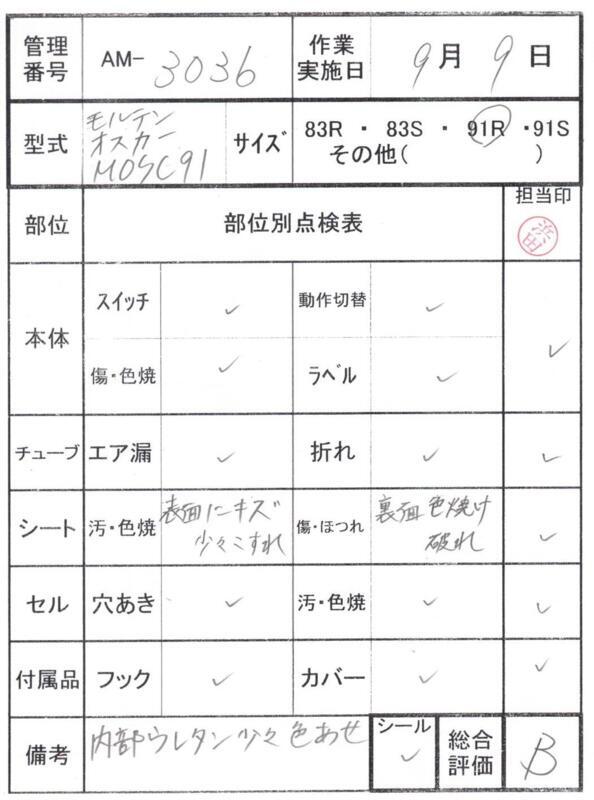 管理番号 AM-3036 作業実施日 9月9日
型式 モルテン オスカー MOSC91 サイズ 83R ・ 83S ・ 91R ・91S
その他( )
部位 部位別点検表 担当印
本体 スイッチ ✓ 動作切替 ✓ ✓
傷・色焼 ✓ ラベル ✓
チューブ エア漏 ✓ 折れ ✓ ✓
シート 汚・色焼 表面にキズ 少々こすれ 傷・ほつれ 裏面色焼け 破れ ✓
セル 穴あき ✓ 汚・色焼 ✓ ✓
付属品 フック ✓ カバー ✓ ✓
備考 内部ウレタン少々色あせ シール ✓ 総合評価 B